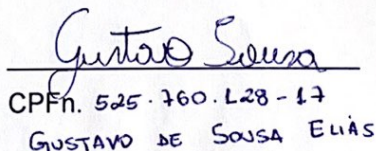 Gustavo Sousa
CPFn. 525.760.128-17
GUSTAVO DE SOUSA ELIAS